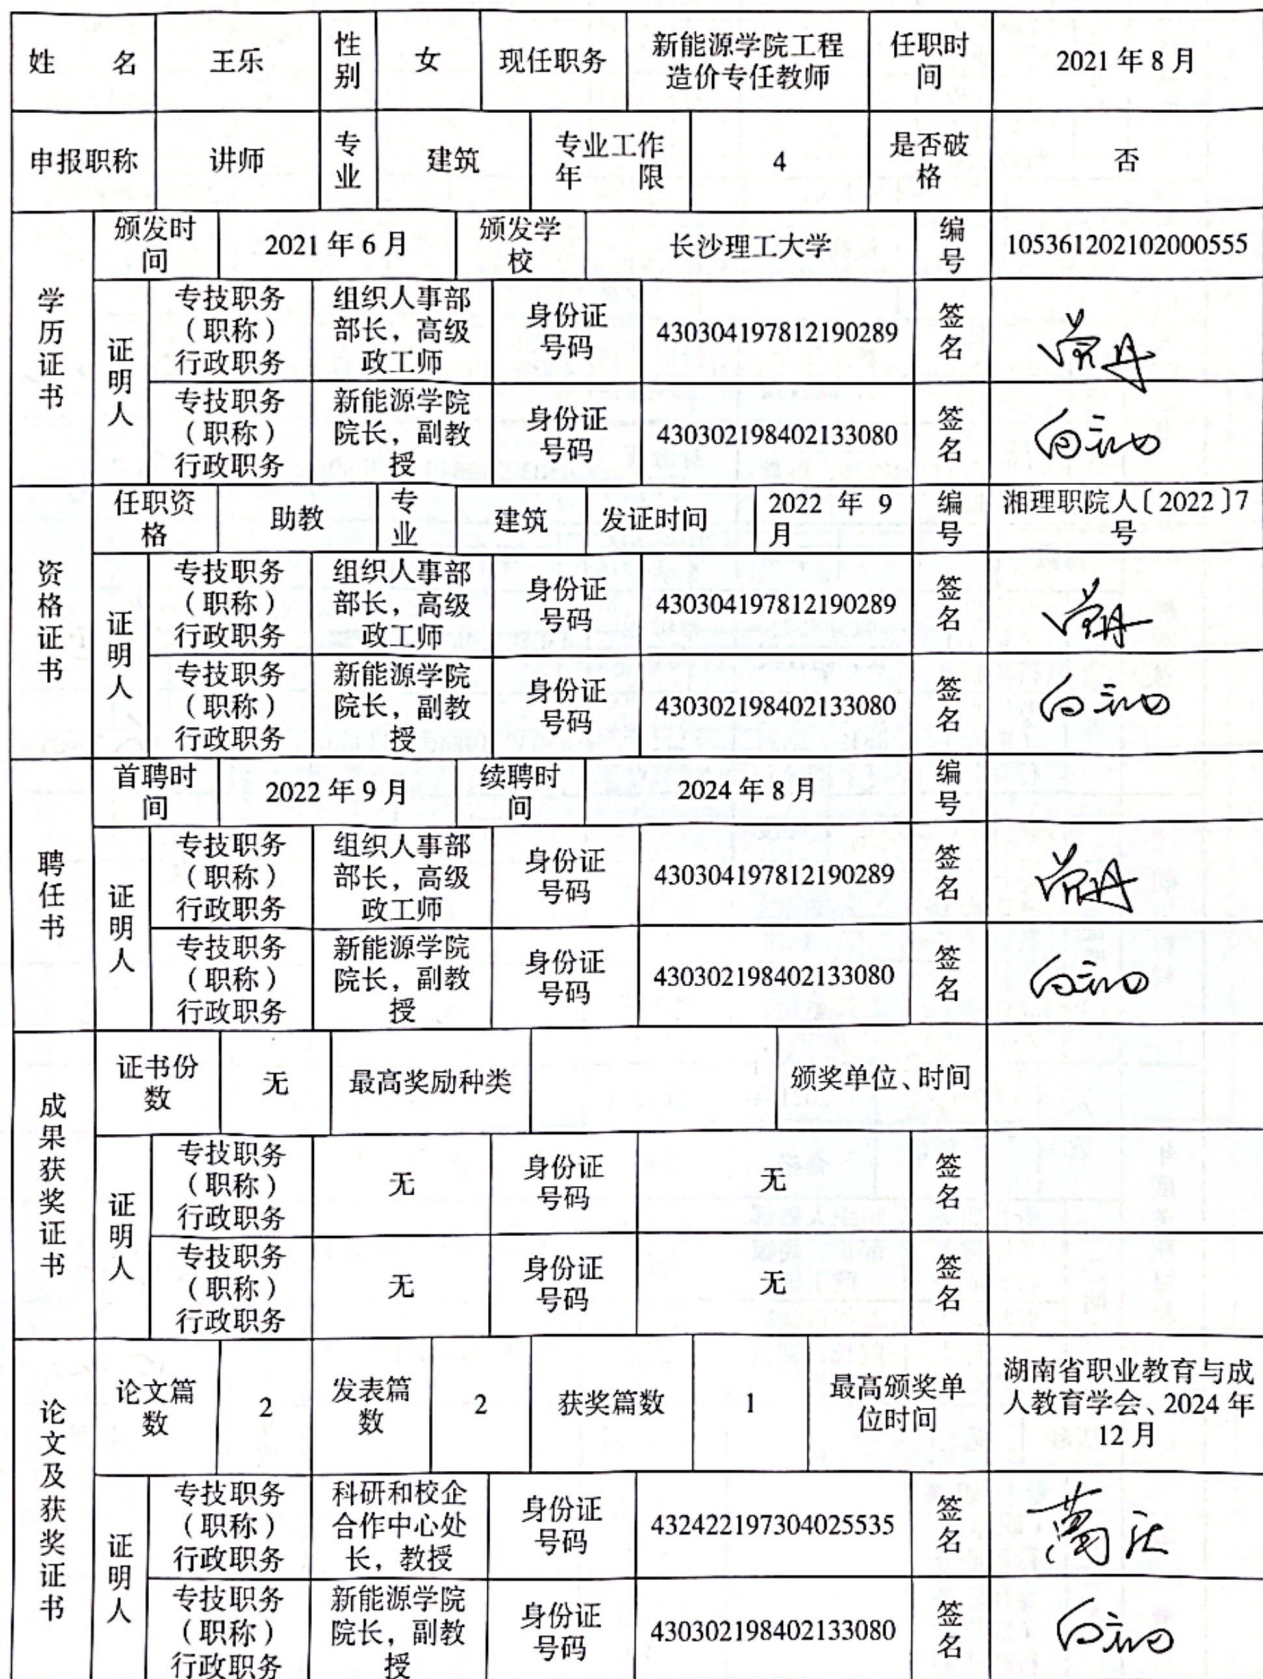 姓 名 王乐 性别 女 现任职务 新能源学院工程造价专任教师 任职时间 2021年8月
申报职称 讲师 专业 建筑 专业工作年限 4 是否破格 否
学历证书 颁发时间 2021年6月 颁发学校 长沙理工大学 编号 105361202102000555
证明人 专技职务（职称）行政职务 组织人事部部长，高级政工师 身份证号码 430304197812190289 签名
专技职务（职称）行政职务 新能源学院院长，副教授 身份证号码 430302198402133080 签名
资格证书 任职资格 助教 专业 建筑 发证时间 2022年9月 编号 湘理职院人〔2022〕7号
证明人 专技职务（职称）行政职务 组织人事部部长，高级政工师 身份证号码 430304197812190289 签名
专技职务（职称）行政职务 新能源学院院长，副教授 身份证号码 430302198402133080 签名
聘任书 首聘时间 2022年9月 续聘时间 2024年8月 编号
证明人 专技职务（职称）行政职务 组织人事部部长，高级政工师 身份证号码 430304197812190289 签名
专技职务（职称）行政职务 新能源学院院长，副教授 身份证号码 430302198402133080 签名
成果获奖证书 证书份数 无 最高奖励种类 颁奖单位、时间
证明人 专技职务（职称）行政职务 无 身份证号码 无 签名
专技职务（职称）行政职务 无 身份证号码 无 签名
论文及获奖证书 论文篇数 2 发表篇数 2 获奖篇数 1 最高颁奖单位时间 湖南省职业教育与成人教育学会、2024年12月
证明人 专技职务（职称）行政职务 科研和校企合作中心处长，教授 身份证号码 432422197304025535 签名
专技职务（职称）行政职务 新能源学院院长，副教授 身份证号码 430302198402133080 签名